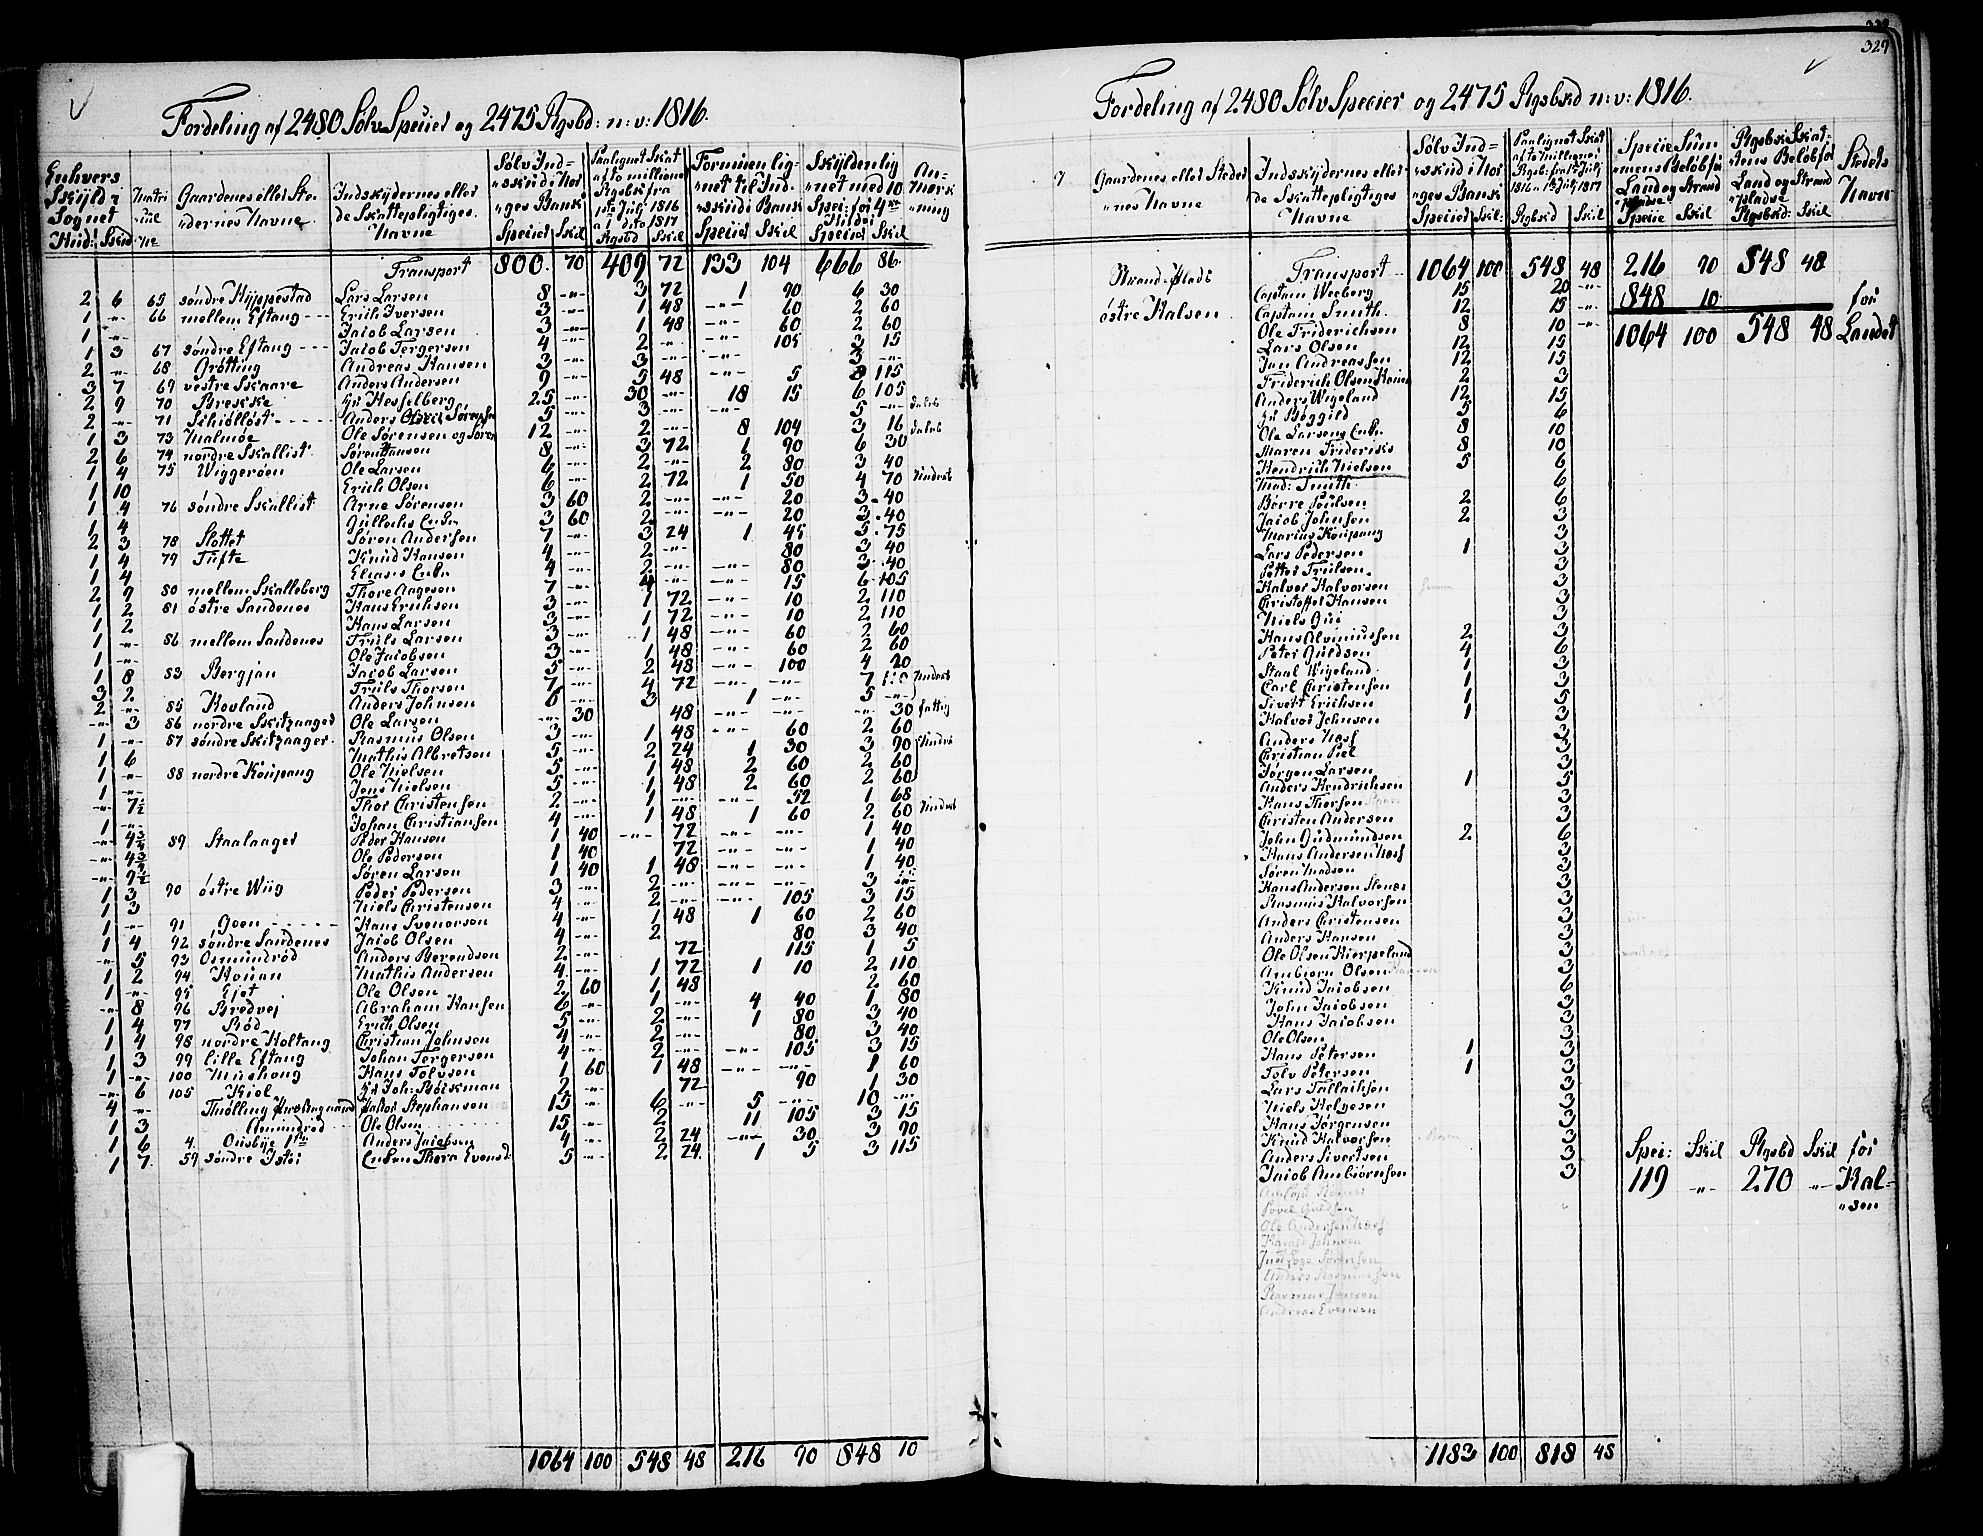 329
Fordeling af 2480 Sølv Specier og 2475 Rgsbd: n: v: 1816.
Enhvers Skyld i Sognet Hud: Skind
Matricul Ne
Gaardenes eller Stedernes Navne
Indskydernes eller de Skattepligtiges Navne
Sølv Indskud i Norges Bank Specier Skil
Paalignet Skat af to millioner Rgsbk fra 1ste July 1816 a 1 dito 1817 Rgsbd Skil
Formuen lignet til Indskud i Bank Specier Skil
Skylden lignet med 10 Speci: for 4re Specier Skil
Anmærkning
Transport 800 70 409 72 133 104 666 86
2 6 65 søndre Hyppestad Lars Larsen 8 -"- 3 72 1 90 6 30
1 -"- 66 mellem Eftang Erich Iversen 3 -"- 1 48 -"- 60 2 60
1 -"- Jacob Larsen 3 -"- 1 48 -"- 60 2 60
1 3 67 søndre Eftang Jacob Tergersen 4 -"- 2 -"- 105 3 15
2 -"- 68 Grøtting Andreas Hansen 3 -"- 3 -"- 3 -"-
3 7 69 vestre Skaare Anders Andersen 9 -"- 5 48 5 8 115
2 9 70 Breskke Hr Hesselberg 25 -"- 30 -"- 18 15 6 105
2 -"- 71 Schiølløst Anders Sørensen 5 -"- 3 -"- -"- 5 -"-
1 3 73 Malmøe Ole Sørensen og Søren 12 -"- 2 -"- 8 104 3 16
2 6 74 nordre Skallist Søren Hansen 8 -"- 3 72 1 90 6 30
1 4 75 Wiggerøen Ole Larsen 6 -"- 2 -"- 2 80 3 40
1 10 Erich Olsen 6 -"- 2 72 1 50 4 70
1 4 76 søndre Skallist Arne Sørensen 3 60 2 -"- -"- 20 3 40
1 4 Gullachs Enke 3 60 2 -"- -"- 20 3 40
2 3 78 Slottet Søren Andersen 7 -"- 3 24 1 45 5 75
1 4 79 Tufte Knud Hansen 4 -"- 2 -"- 80 3 40
1 4 Eliases Enke 4 -"- 2 -"- -"- 80 3 40
2 9 80 mellem Skalleberg Thore Aagesen 7 -"- 4 -"- -"- 15 6 105
1 2 81 østre Sandenes Hans Erichsen 3 -"- 1 72 -"- 10 2 110
1 2 Hans Larsen 3 -"- 1 72 -"- 10 2 110
1 -"- 86 mellem Sandenes Truls Larsen 3 -"- 1 48 -"- 60 2 60
1 -"- Ole Jacobsen 3 -"- 1 48 -"- 60 2 60
1 8 83 Bergjan Jacob Larsen 5 -"- 2 48 -"- 100 4 20
3 2 Truls Thorsen 7 -"- 4 72 -"- -"- 7
2 -"- 85 Rovland Anders Johnsen 6 -"- 3 1 -"- 5 -"-
-"- 3 86 nordre Skitzaager Ole Larsen -"- 30 48 -"- -"- -"- 30 fattig
1 -"- 87 søndre Skitzaager Rasmus Olsen 3 -"- 1 48 -"- 60 2 60
1 6 Mathis Albretsen 5 -"- 2 24 1 30 3 90
1 -"- 88 nordre Kaupang Ole Nielsen 5 -"- 1 48 2 60 2 60
1 -"- Jens Nielsen 5 -"- 1 48 2 60 2 60
-"- 7½ Thor Christensen 2 -"- 1 -"- -"- 52 1 68
1 -"- Johan Christiansen 4 -"- 1 48 1 60 2 60
-"- 4¾ 89 Staalaager Peder Hansen 1 40 -"- 72 -"- -"- 1 40
-"- 4¾ Ole Pedersen 1 40 72 -"- -"- 1 40
-"- 9½ Søren Larsen 1 40 1 48 -"- -"- 1 40
1 3 90 østre Wiig Peder Pedersen 3 -"- 2 -"- -"- -"- 3
1 3 Niels Christensen 4 -"- 2 -"- -"- 105 3 15
1 -"- 91 Goen Hans Svenorsen 4 -"- 1 48 1 60 2 60
1 4 92 søndre Sandenes Jacob Olsen 4 -"- 2 80 3 40
-"- 5 93 Osmundrød Anders Berendsen 2 -"- 72 115 1 5
1 2 94 Kouen Mathis Andersen 4 -"- 1 72 1 10 2 110
1 -"- 95 Gjøt Ole Olsen 2 60 1 48 2 60
-"- 8 96 Brødvej Abraham Hansen 6 -"- 1 -"- 4 40 1 80
1 4 97 Rød Erich Olsen 5 -"- 2 -"- 1 80 3 40
1 4 98 nordre Holtang Christian Johnsen 4 -"- 2 -"- 80 3 40
1 3 99 lille Eftang Johan Tergersen 4 -"- 2 -"- -"- 105 3 15
1 -"- 100 Mushong Hans Tolvsen 1 60 1 48 -"- -"- 1 60
-"- 6 105 Kiol Hr Joh: Bockman 2 -"- 72 90 1 30
4 -"- Thølling Jakob Stephansen 15 -"- 6 -"- 5 -"- 10 -"-
1 3 Amundrød Ole Olsen 15 -"- 2 11 105 3 15
1 6 4. Ousbye Anders Jacobsen 4 -"- 2 24 -"- 30 3 90
1 7. 59 søndre Istøi Enken Thora Evensd 5 -"- 2 24 1 5 3 115
1064 100 548 48 216 90 848 10
Fordeling af 2480 Sølv Specier og 2475 Rgsbkd n: v: 1816.
Gaardenes eller Stedernes Navne
Indskydernes eller de Skattepligtiges Navne
Sølv Indskud i Norges Bank Specier Skil:
Paalignet Skat af to Millioner Rgsb: fra 1ste July 1816 1ste July 1817 Rgsbkd Skil
Specie Summemens Beløb for Land og Strand Specie Skil
Rgsbks Skattens Beløb for Land og Strand pladse Rgsbkd: Skil
Stedets Navn
Strand Plads Transport 1064 100 548 48 216 90 848 48
Captam Weeberg 15 20 -"- 848 10 for
østre Halsen Captam Smith 12 15 -"-
Ole Friderichsen 8 10 -"- 1064 100 548 48 Landet
Lars Olsen 12 15
Jan Andreassen 12 15
Friderich Olsen 2 3
Anders Wigeland 12 15
Hr Bøggild 5 6
Ole Larsens Enke 8 10
Maren Frideriks 8 10
Hendrich Nielsen 5 6
Mad: Smith 6
Børre Poulsen 2 6
Jacob Johnsen 2 3
Marius Koupang 3
Lars Pedersen 1 3
Petter Trulsen 3
Halvor Halvorsen 3
Christoffer Hansen 3
Niels Gui 3
Hans Alviniussen 2 3
Peter Guldsen 4 6
Staal Wigeland 1 3
Carl Christensen 1 3
Sivert Erichsen 1 5
Halvor Johnsen 1 3
Anders Næss 3
Christian Piel 2
Jørgen Larsen 3
Anders Hendrichsen 1 5
Hans Thorsen 3
Christen Andersen 3
John Gudmundsen 2 6
Hans Andersen Næss 3
Søren Madsen 3
Hans Andersen Stenes 3
Rasmus Halvorsen 3
Anders Christensen 3
Anders Hansen 3
Ole Olsen Kierpeland 3
Ambiørn Olsen 3
Knud Jacobsen 6
John Jacobsen 3
Hans Jacobsen 3
Ole Olsen 3
Hans Petersen 1 3
Tolv Petersen 1 3
Lars Tallachsen 3
Niels Helgesen 3
Hans Jørgensen 3
Knud Halvorsen 3
Anders Sivertsen 3 Speci: Skil Rgsbd Skil for
Jacob Ambiørnsen 3 119 -"- 270 -"- Halsen
Povel Guldsen
Ole Andersen Næss
Harald Johnsen
Rasmus Jansen
Andreas Evensen
1183 100 818 48